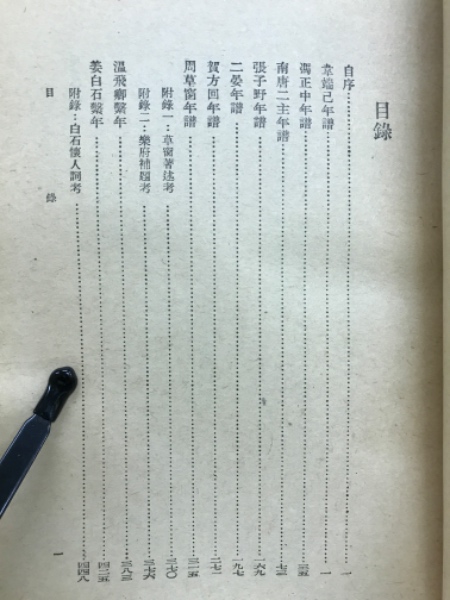 目錄
自序……一
韋端己年譜……一
馮正中年譜……三五
南唐二主年譜……七三
張子野年譜……一六九
二晏年譜……一九七
賀方回年譜……二七一
周草窗年譜……三一五
附錄一：草窗著述考……三七〇
附錄二：樂府補題考……三七六
溫飛卿繫年……三八三
姜白石繫年……四二五
附錄：白石懷人詞考……四四八
目 錄 一